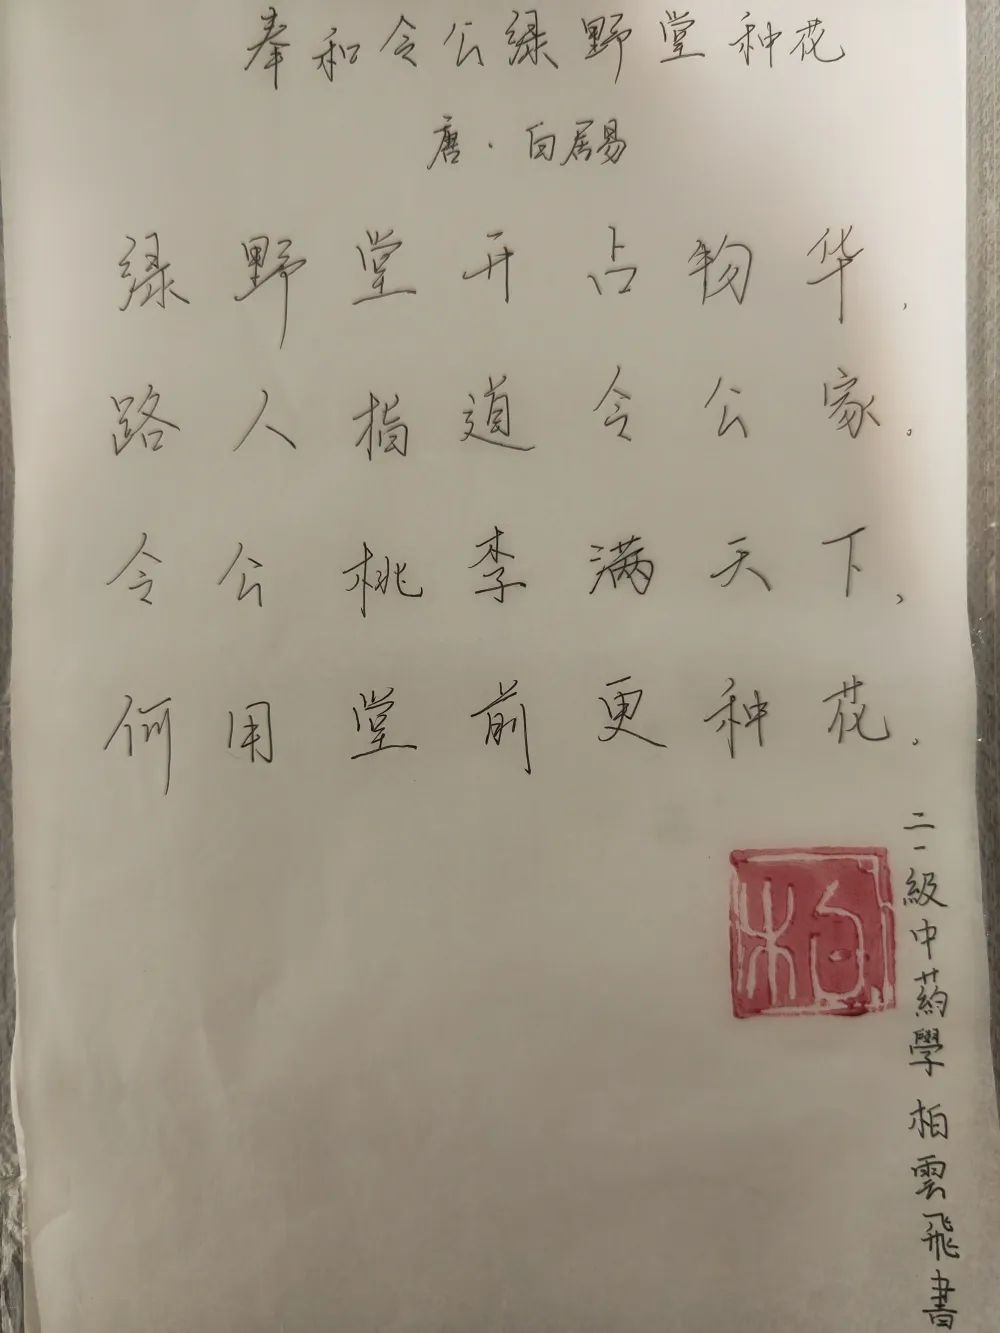 奉和令公绿野堂种花
唐·白居易
绿野堂开占物华,
路人指道令公家。
令公桃李满天下,
何用堂前更种花.
二一级中药學 柏雲飛書
柏